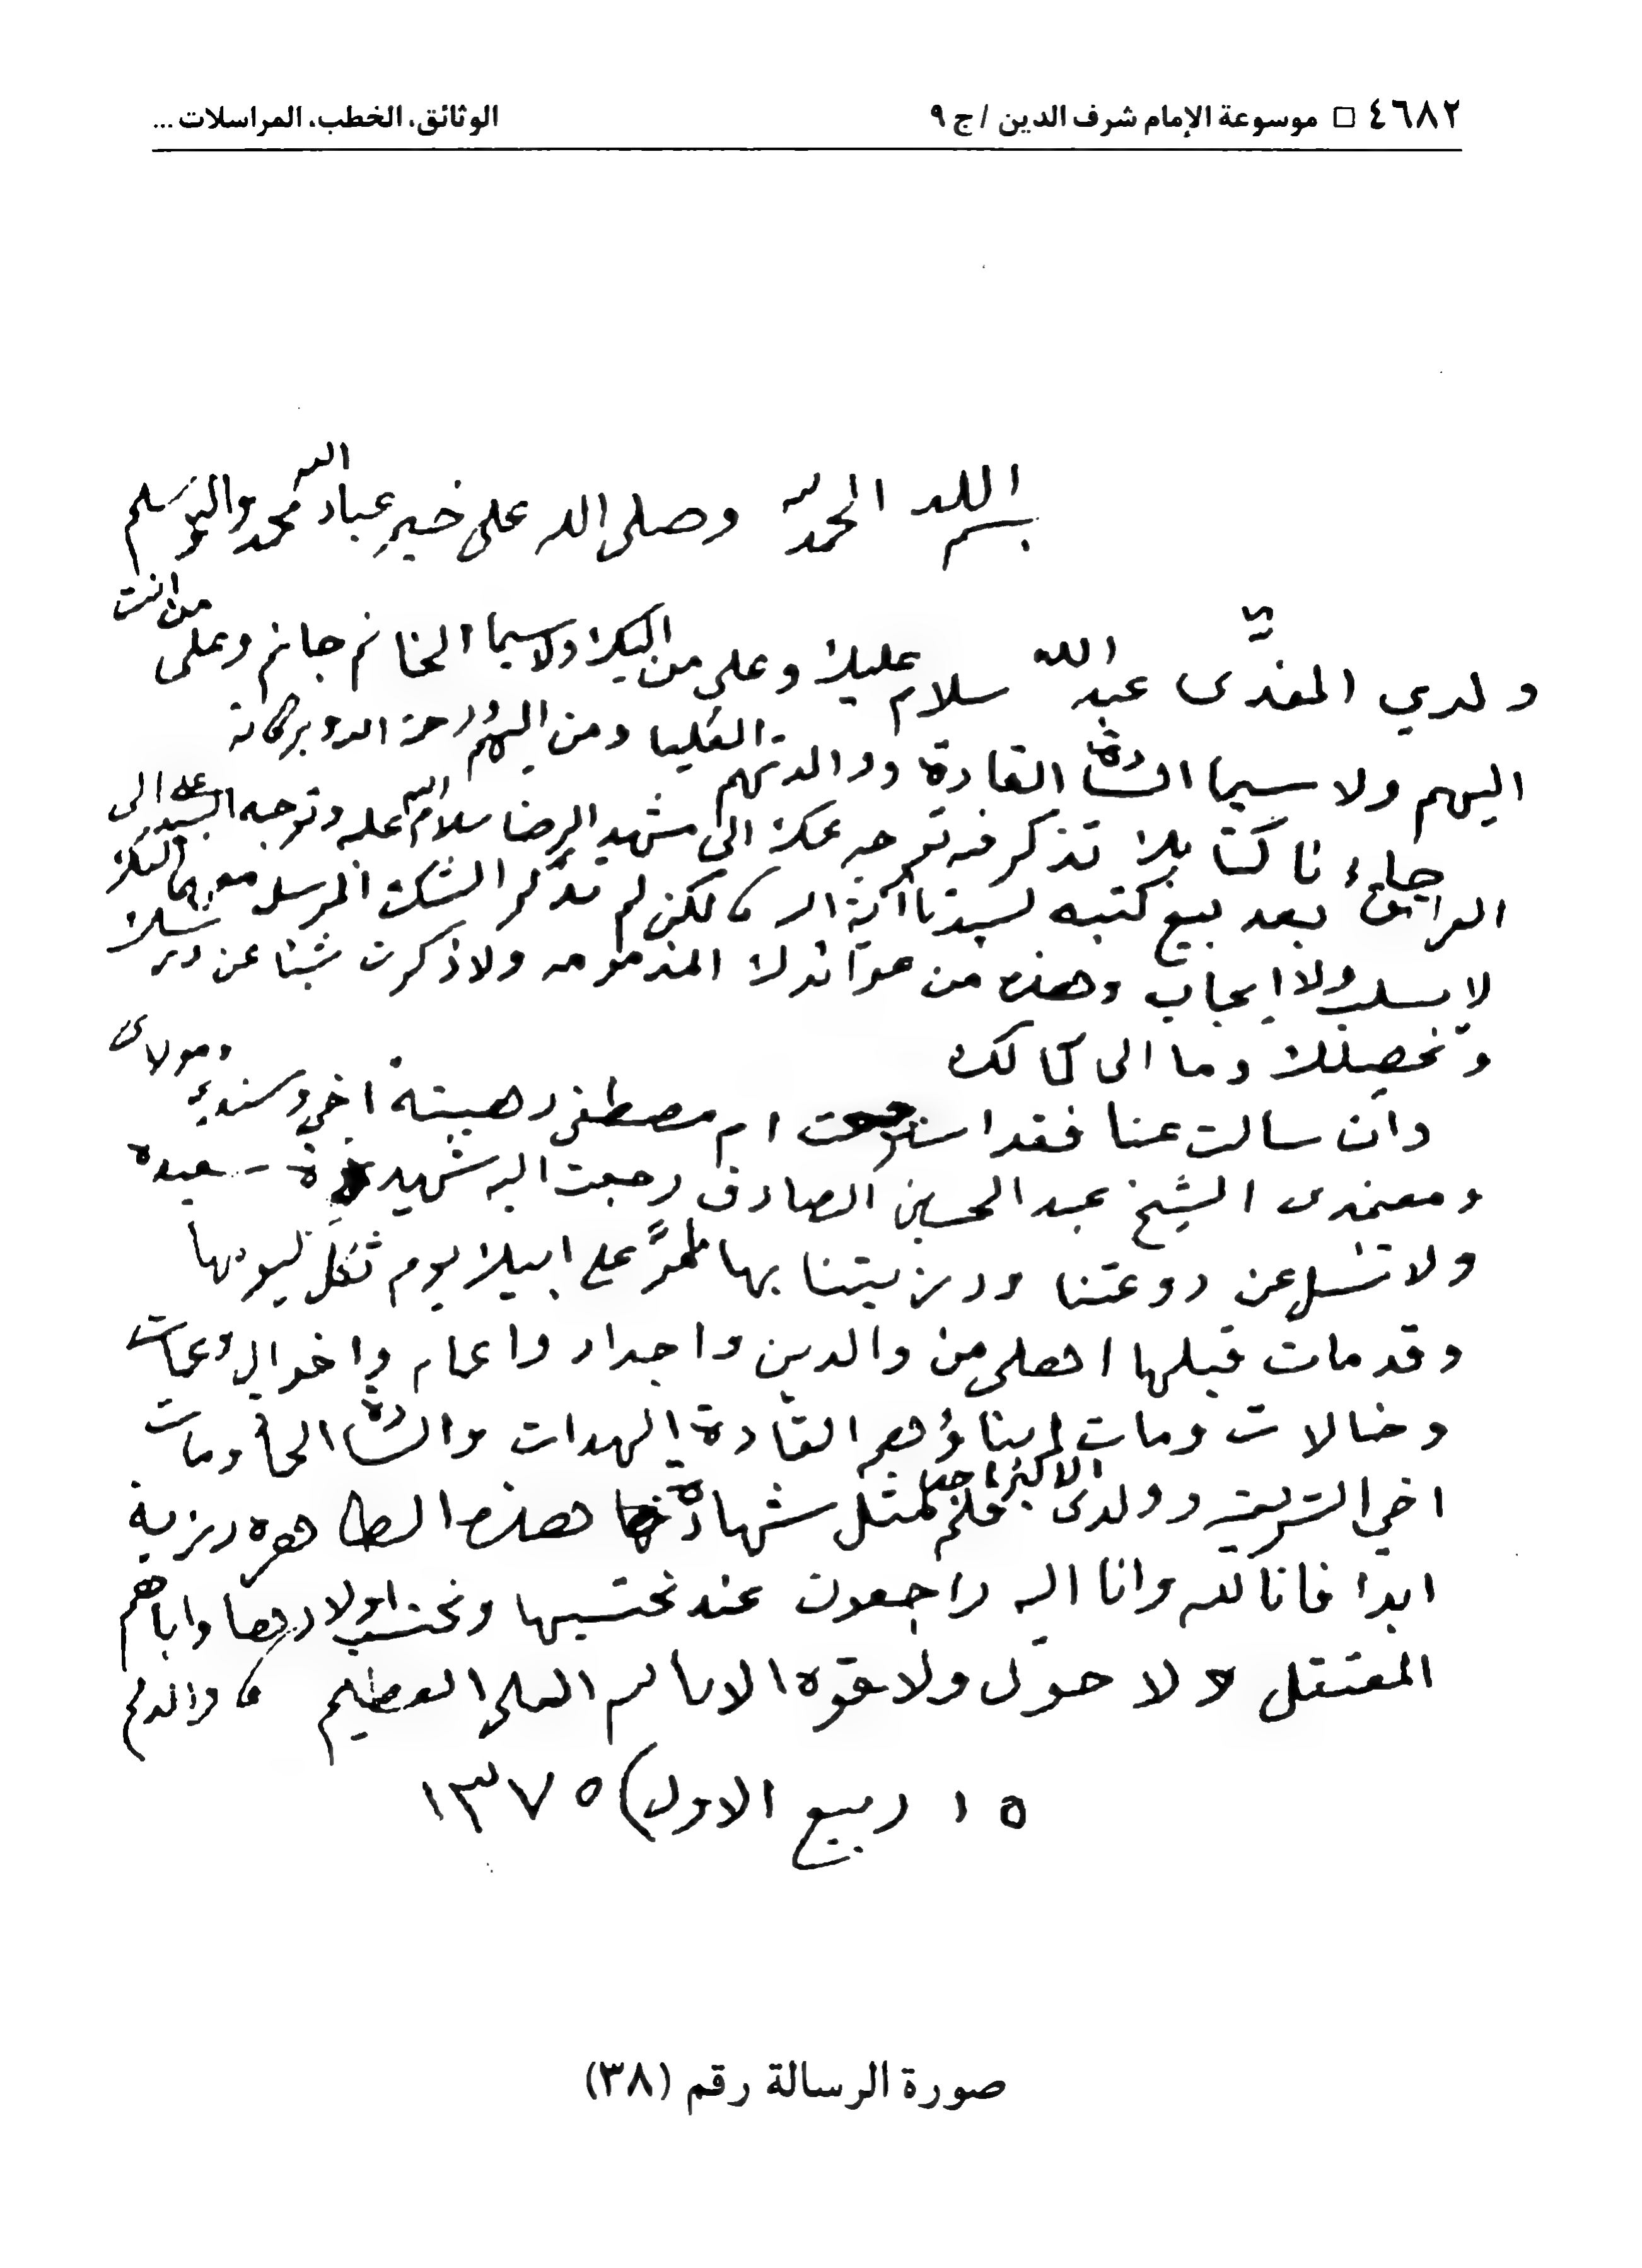 ٤٦٨٢ □ موسوعة الإمام شرف الدين / ج ٩ الوثائق، الخطب، المراسلات ...
بسم الله الحمد لله وصلى الله على خير عباد الله محمد واله وسلم
ولدي المفدى عبد الله سلام عليك وعلى من اليك ولا سيما الخانم جانم وعلى من انت
اليهم ولا سيما السادة القادة ووالدتهم العليا ومن اليهم ورحمة الله وبركاته
جاءنا كتابك تذكر فيه توجه عمك الى مشهد الرضا سلام الله عليه وتوجه السيد الى
العراق بعد بيع كتبه لسيدنا اية الله لكن لم تذكر الشك المرسل اليك
لا بسلب ولا ايجاب وهذه من عوائدك المذمومة ولا ذكرت شيئا عن درسك
وتحصيلك وما الى ذلك
وان سالت عنا فقد ام مصطفى رهينة اخي وسندي ومولاي
ومعتمدي الشيخ عبد الحسين الصادق رجعت اليه شهيدة سعيدة
ولا تسل عن روعتنا ورزيتنا بها على ابيك يوم ثكل بها
وقد مات قبلها اهلي من والدين واجداد واعمام واخوال وعمات
وخالات ومات القادة الهداة والسادة ومات
اخي الشريف وولدي الاكبر فلم شهادة هذه الطاهرة رزية
ابدا فانا لله وانا اليه راجعون عند الله نحتسبها ونحتسب اولادها واباهم
المعتقل ولا حول ولا قوة الا بالله العلي العظيم والدكم
١٥ ربيع الاول ١٣٧٥
صورة الرسالة رقم (٣٨)